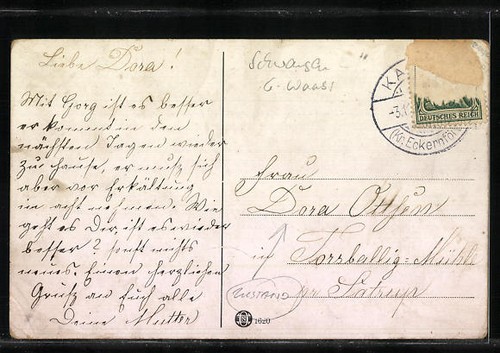 Liebe Dora!
Mit Georg ist es besser
er kommt in den
nächsten Tagen wieder
zu hause, er muß sich
aber vor Erkältung
in acht nehmen. Wie
geht es Dir ist es wieder
besser? sonst nichts
neues. Einen herzlichen
Gruß an Euch alle
Deine Mutter
DEUTSCHES REICH
KA
-3.1
(Kr. Eckernfö
Frau
Dora Ottsen
in Torsballig-Mühle
pr Satrup
ZUSTAND
1620